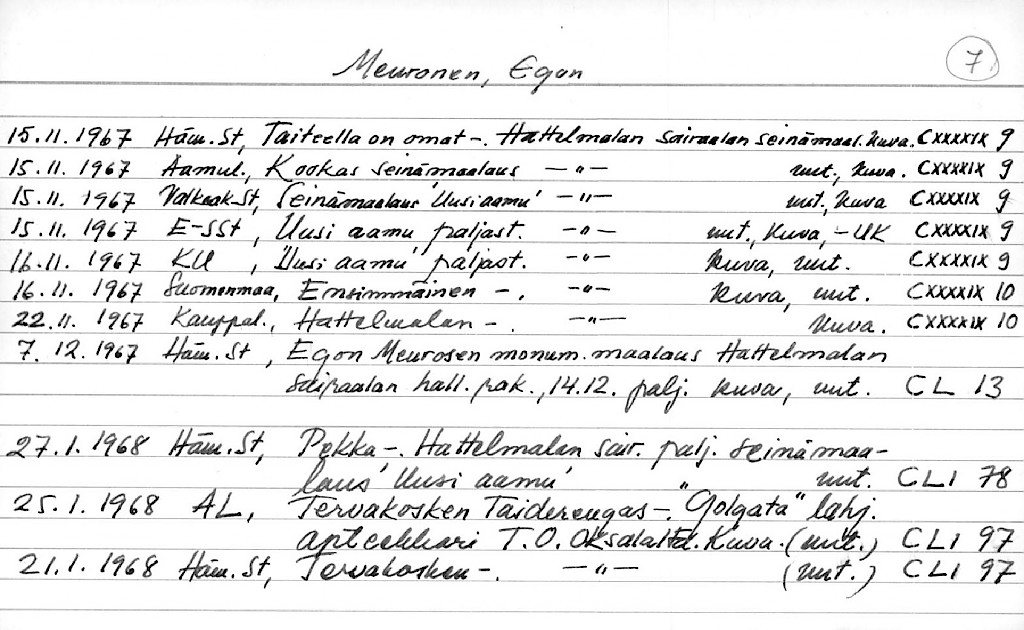 Meuronen, Egon
7
15.11.1967 Häm.St, Taiteella on omat -. Hattelmalan sairaalan seinämaal. kuva. CXXXXIX 9
15.11.1967 Aamul., Kookas seinämaalaus —"— uut., kuva. CXXXXIX 9
15.11.1967 Valkeak.St, Seinämaalaus 'Uusi aamu' —"— uut., kuva CXXXXIX 9
15.11.1967 E-SSt, Uusi aamu paljast. —"— uut., kuva, -UK CXXXXIX 9
16.11.1967 KU, 'Uusi aamu' paljast. —"— kuva, uut. CXXXXIX 9
16.11.1967 Suomenmaa, Ensimmäinen -. —"— kuva, uut. CXXXXIX 10
22.11.1967 Kauppal., Hattelmalan -. —"— kuva. CXXXXIX 10
7.12.1967 Häm.St, Egon Meurosen monum. maalaus Hattelmalan
sairaalan hall. rak., 14.12. palj. kuva, uut. CL 13
27.1.1968 Häm.St, Pekka -. Hattelmalan sair. palj. seinämaa-
laus 'Uusi aamu' uut. CLI 78
25.1.1968 AL, Tervakosken Taiderengas -. "Golgata" lahj.
apteekkari T.O. Oksalalta. Kuva. (uut.) CLI 97
21.1.1968 Häm.St, Tervakosken -. —"— (uut.) CLI 97